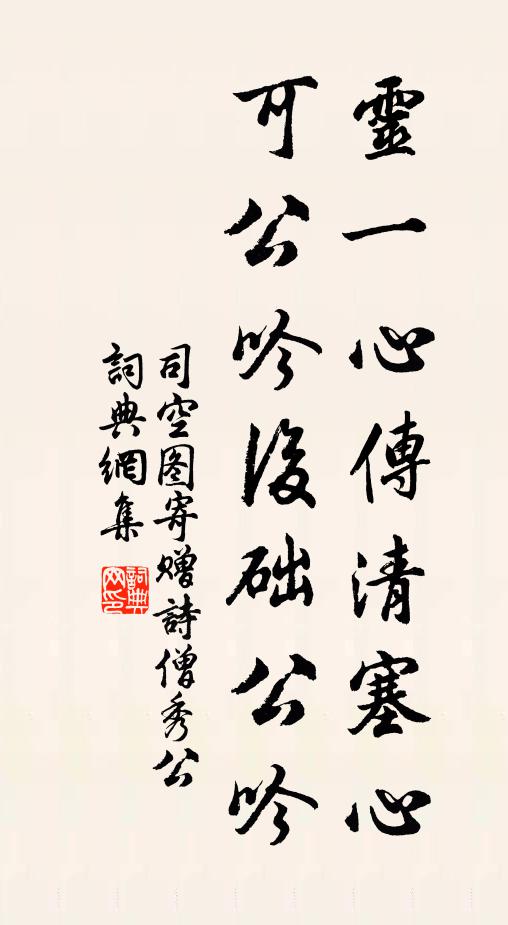 靈一心傳清塞心
可公吟後础公吟
司空图寄赠詩僧秀公
詞典網集
詞典网印